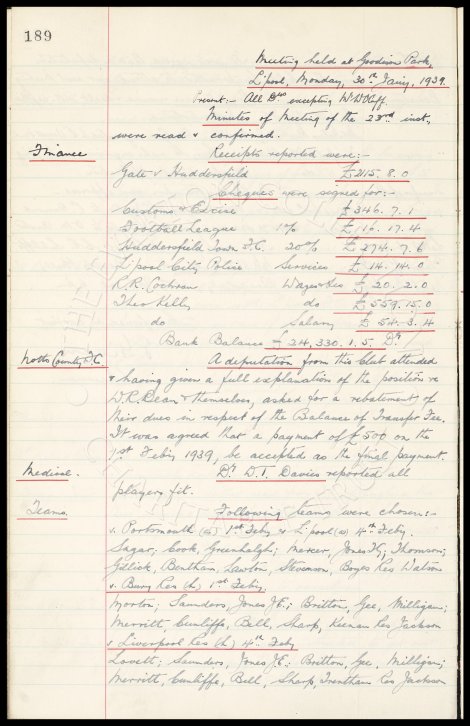 189
Meeting held at Goodison Park,
L'pool, Monday, 30th Jan'y, 1939.
Present:- All Drs excepting W. C. Cuff.
Minutes of Meeting of the 23rd inst,
were read & confirmed.
Finance
Receipts reported were:-
Gate v Huddersfield £2115. 8. 0
Cheques were signed for:-
Customs & Excise £346. 7. 1
Football League 1% £16. 17. 4
Huddersfield Town F.C. 20% £274. 7. 6
L'pool City Police Services £14. 14. 0
R.R. Cochran Wages &c £20. 2. 0
Theo Kelly do £559. 15. 0
do Salary £54. 3. 4
Bank Balance £24,330. 1. 5 Dr
Notts County F.C.
A deputation from this Club attended
& having given a full explanation of the position re
W.R. Dean & themselves, asked for a rebatement of
their dues in respect of the Balance of Transfer Fee.
It was agreed that a payment of £500 on the
1st Feb'y 1939, be accepted as the final payment.
Medical.
Dr D.T. Davies reported all
players fit.
Teams.
Following teams were chosen:-
v. Portsmouth 1st Feby & L'pool (a) 4th Feby.
Sagar; Cook, Greenhalgh; Mercer, Jones T.G., Thomson;
Gillick, Bentham, Lawton, Stevenson, Boyes Res Watson
v. Bury Res (h) 1st Feby.
Morton; Saunders, Jones J.E.; Britton, Gee, Milligan;
Merritt, Cunliffe, Bell, Sharp, Keenan Res Jackson
v Liverpool Res (h) 4th Feby
Lovett; Saunders, Jones J.E.; Britton, Gee, Milligan;
Merritt, Cunliffe, Bell, Sharp, Trentham Res Jackson